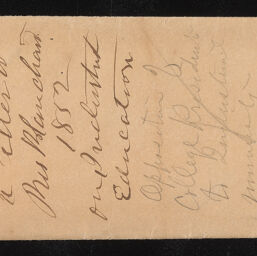 Letter to
Pres Blanchard
1852.
on Industrial
Education
Opposition of
College Presidents
to Industrial